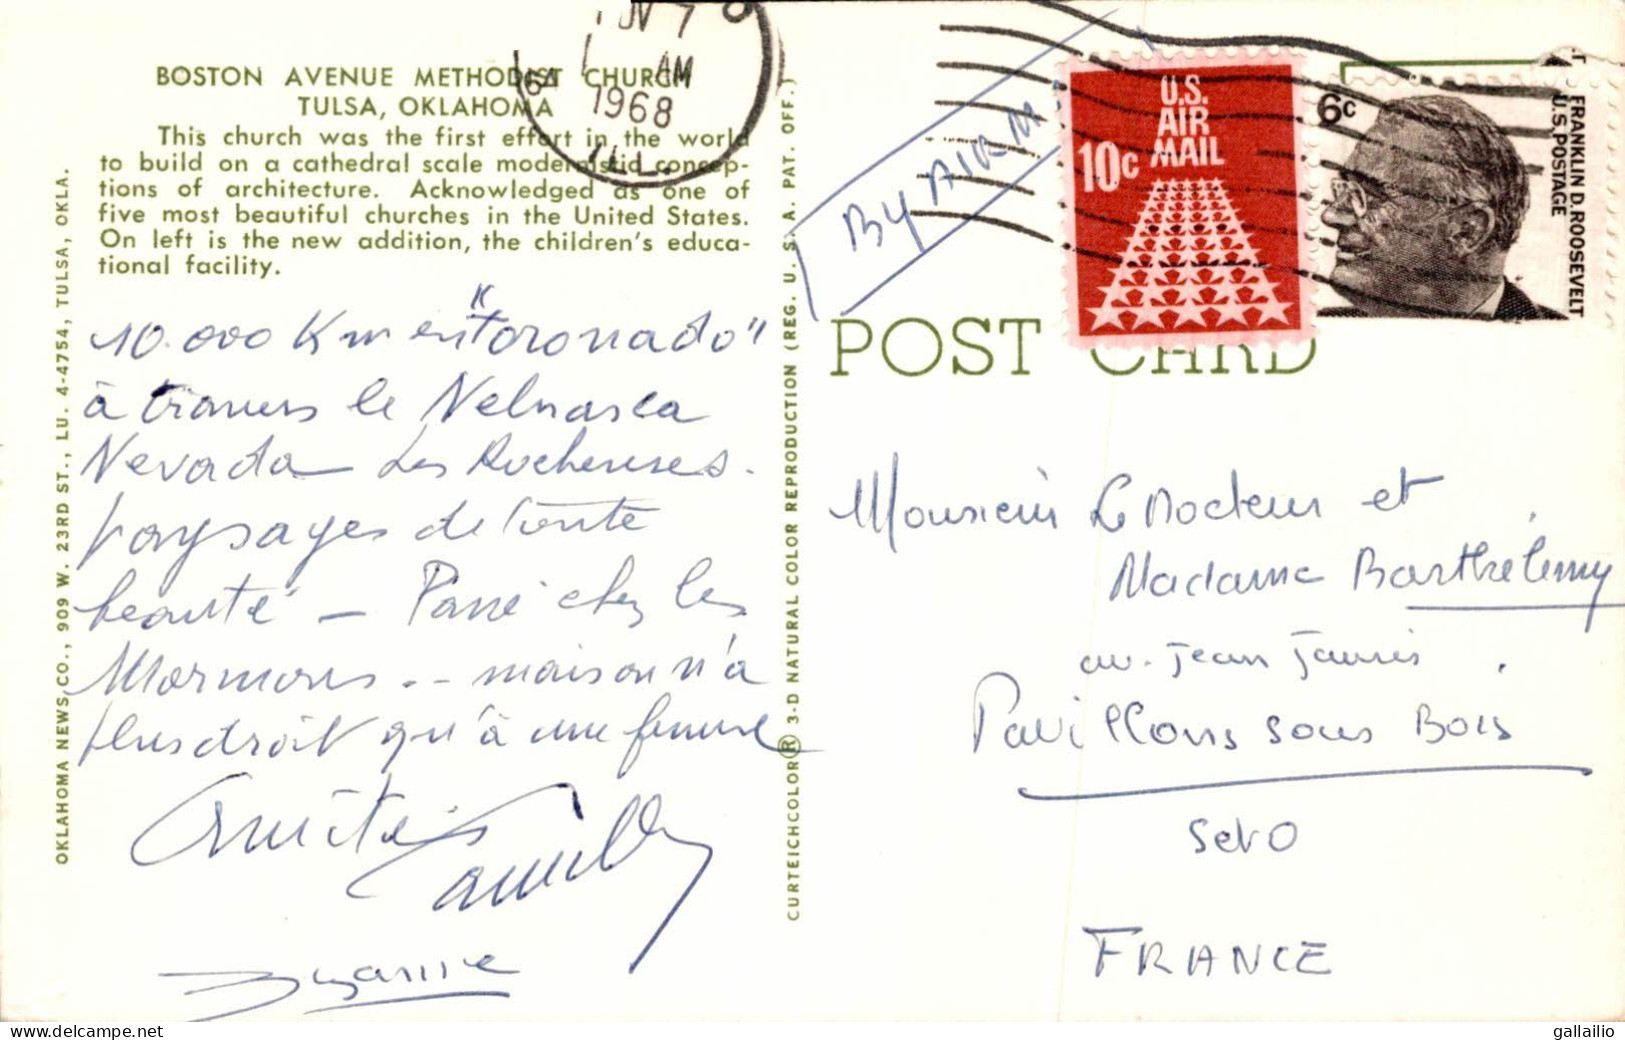 BOSTON AVENUE METHODIST CHURCH
TULSA, OKLAHOMA
This church was the first effort in the world
to build on a cathedral scale modernistic concep-
tions of architecture. Acknowledged as one of
five most beautiful churches in the United States.
On left is the new addition, the children's educa-
tional facility.
10.000 Km en "toronado"
à travers le Nebrasca
Nevada Les Rocheuses.
paysages de toute
beauté - Passé chez les
Mormons -- mais on n'a
plus droit qu'à une femme
Amitiés
Suzanne
OKLAHOMA NEWS CO., 909 W. 23RD ST., LU. 4-4754, TULSA, OKLA.
CURTEICHCOLOR® 3-D NATURAL COLOR REPRODUCTION (REG. U. S. A. PAT. OFF.)
7
AM
1968
ILL.
By AIR M
U.S.
AIR
MAIL
10c
6c
FRANKLIN D. ROOSEVELT
U.S. POSTAGE
POST CARD
Monsieur Le Docteur et
Madame Barthélemy
av. Jean Jaurès
Pavillons sous Bois
Seto
FRANCE
gallailio